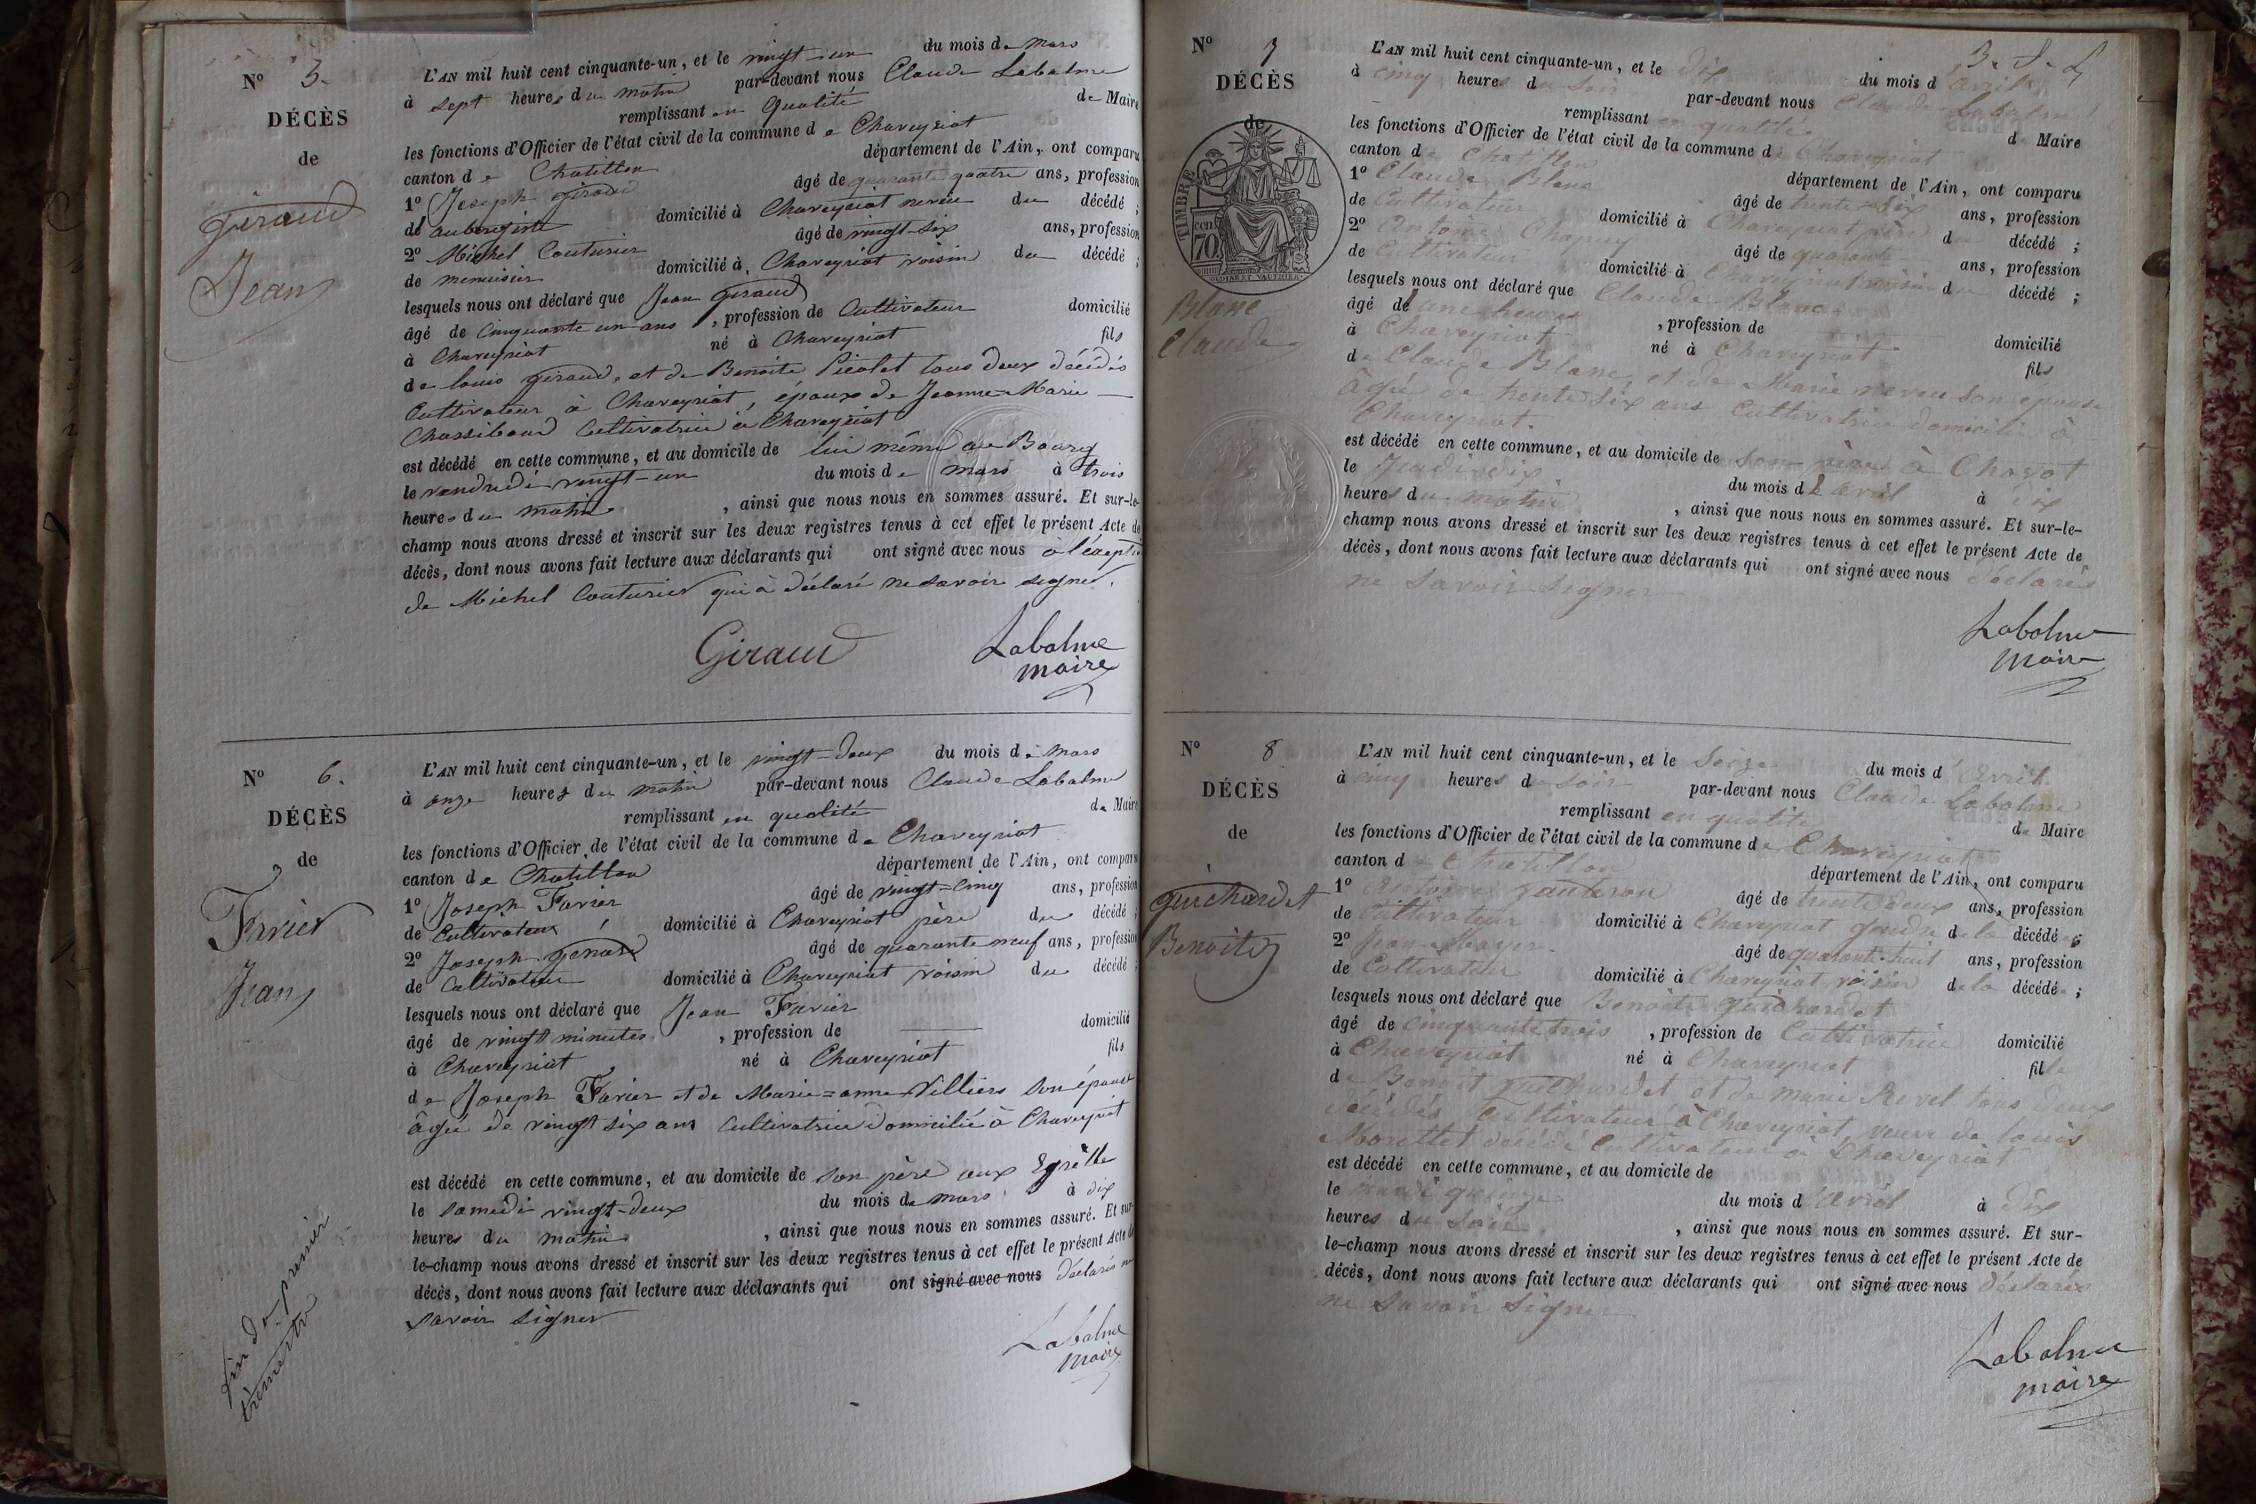 N° 5.
DÉCÈS
de
Giraud
Jean
L'AN mil huit cent cinquante-un, et le vingt-un du mois de mars
à sept heures du matin par-devant nous Claude Labalme
remplissant en qualité de Maire
les fonctions d'Officier de l'état civil de la commune de Chaveyriat
canton de Chatillon département de l'Ain, ont comparu
1° Joseph Giraud âgé de quarante quatre ans, profession
de aubergiste domicilié à Chaveyriat neveu du décédé ;
2° Michel Couturier âgé de vingt-six ans, profession
de menuisier domicilié à Chaveyriat voisin du décédé ;
lesquels nous ont déclaré que Jean Giraud
âgé de cinquante un ans, profession de Cultivateur domicilié
à Chaveyriat né à Chaveyriat fils
de louis giraud, et de Benoite Picolet tous deux décédés
Cultivateur à Chaveyriat, époux de Jeanne-Marie
Chassiboud Cultivatrice à Chaveyriat
est décédé en cette commune, et au domicile de lui même au Bourg
le vendredi vingt-un du mois de mars à trois
heures du matin, ainsi que nous nous en sommes assuré. Et sur-le-
champ nous avons dressé et inscrit sur les deux registres tenus à cet effet le présent Acte de
décès, dont nous avons fait lecture aux déclarants qui ont signé avec nous à l'éxeptio
de Michel Couturier qui à déclaré ne savoir signer.
Giraud
Labalme
maire
N° 6.
DÉCÈS
de
Favier
Jean
L'AN mil huit cent cinquante-un, et le vingt-deux du mois de mars
à onze heures du matin par-devant nous Claude Labalme
remplissant en qualité de Maire
les fonctions d'Officier de l'état civil de la commune de Chaveyriat
canton de Chatillon département de l'Ain, ont comparu
1° Joseph Favier âgé de vingt-cinq ans, profession
de Cultivateur domicilié à Chaveyriat père du décédé ;
2° Joseph genard âgé de quarante neuf ans, profession
de Cultivateur domicilié à Chaveyriat voisin du décédé ;
lesquels nous ont déclaré que Jean Favier
âgé de vingt minutes, profession de domicilié
à Chaveyriat né à Chaveyriat fils
de Joseph Favier et de Marie=anne Villiers son épouse
âgée de vingt six ans Cultivatrice domicilié à Chaveyriat
est décédé en cette commune, et au domicile de son père aux
le samedi vingt-deux du mois de mars à dix
heures du matin, ainsi que nous nous en sommes assuré. Et sur-
le-champ nous avons dressé et inscrit sur les deux registres tenus à cet effet le présent Acte de
décès, dont nous avons fait lecture aux déclarants qui ont signé avec nous déclarés ne
savoir signer
Labalme
maire
fin du premier
trimestre
N° 7
DÉCÈS
de
TIMBRE
70
cen
Blanc
Claude
L'AN mil huit cent cinquante-un, et le dix du mois d'avril
à cinq heures du soir par-devant nous Claude Labalme
remplissant en qualité de Maire
les fonctions d'Officier de l'état civil de la commune de Chaveyriat
canton de Chatillon département de l'Ain, ont comparu
1° Claude Blanc âgé de trente-six ans, profession
de Cultivateur domicilié à Chaveyriat père du décédé ;
2° Antoine Chapuy âgé de quarante ans, profession
de Cultivateur domicilié à Chaveyriat voisin du décédé ;
lesquels nous ont déclaré que Claude Blanc
âgé de une heure, profession de domicilié
à Chaveyriat né à Chaveyriat fils
de Claude Blanc, et de Marie neveu son épouse
âgée de trente six ans Cultivatrice domicilié à
Chaveyriat.
est décédé en cette commune, et au domicile de son père à Chayot
le Jeudi dix du mois d'avril à
heures du matin, ainsi que nous nous en sommes assuré. Et sur-le-
champ nous avons dressé et inscrit sur les deux registres tenus à cet effet le présent Acte de
décès, dont nous avons fait lecture aux déclarants qui ont signé avec nous déclarés
ne savoir signer
Labalme
maire
N° 8
DÉCÈS
de
guichardet
Benoite
L'AN mil huit cent cinquante-un, et le Seize du mois d'Avril
à cinq heures du soir par-devant nous Claude Labalme
remplissant en qualité de Maire
les fonctions d'Officier de l'état civil de la commune de Chaveyriat
canton de Chatillon département de l'Ain, ont comparu
1° Antoine gauteron âgé de trente deux ans, profession
de Cultivateur domicilié à Chaveyriat gendre de la décédée ;
2° Jean Mayer âgé de quarante-huit ans, profession
de Cultivateur domicilié à Chaveyriat voisin de la décédée ;
lesquels nous ont déclaré que Benoite guichardet
âgé de cinquante trois, profession de Cultivatrice domicilié
à Chaveyriat né à Chaveyriat fille
de Benoit guichardet et de marie Revel tous deux
décédés Cultivateur à Chaveyriat veuve de louis
Morellet décédé Cultivateur à Chaveyriat
est décédé en cette commune, et au domicile de
le mardi quinze du mois d'avril à dix
heures du soir, ainsi que nous nous en sommes assuré. Et sur-
le-champ nous avons dressé et inscrit sur les deux registres tenus à cet effet le présent Acte de
décès, dont nous avons fait lecture aux déclarants qui ont signé avec nous déclarés
ne savoir signer
Labalme
maire